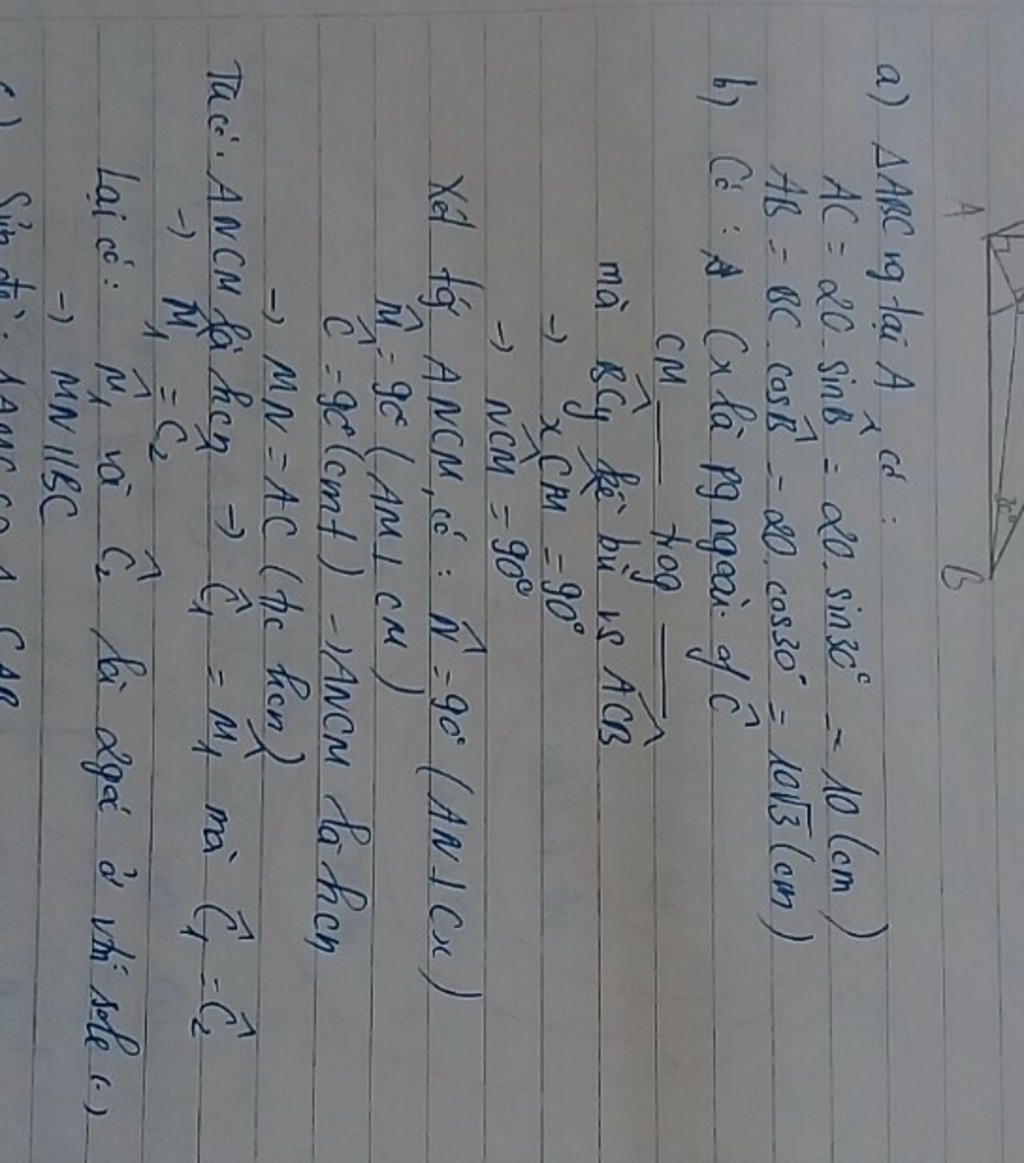 A
B
30°
a) ΔABC vg tại A có :
AC = 20. sinB̂ = 20. sin30° = 10 (cm)
AB = BC. cosB̂ = 20. cos30° = 10√3 (cm)
b) Có : Cx là pg ngoài of Ĉ
CM ___ trog ___
mà BĈy kề bù vs AĈB
→ xĈM = 90°
→ NĈM = 90°
Xét tg ANCM, có : N̂ = 90° (AN ⊥ Cx)
M̂ = 90° (AM ⊥ CM)
Ĉ = 90° (cmt) → ANCM là hcn
→ MN = AC (tc hcn)
Ta có: ANCM là hcn → Ĉ₁ = M̂₁ mà Ĉ₁ = Ĉ₂
→ M̂₁ = Ĉ₂
Lại có: M̂₁ và Ĉ₂ là 2 góc ở vtrí sole (.)
→ MN // BC